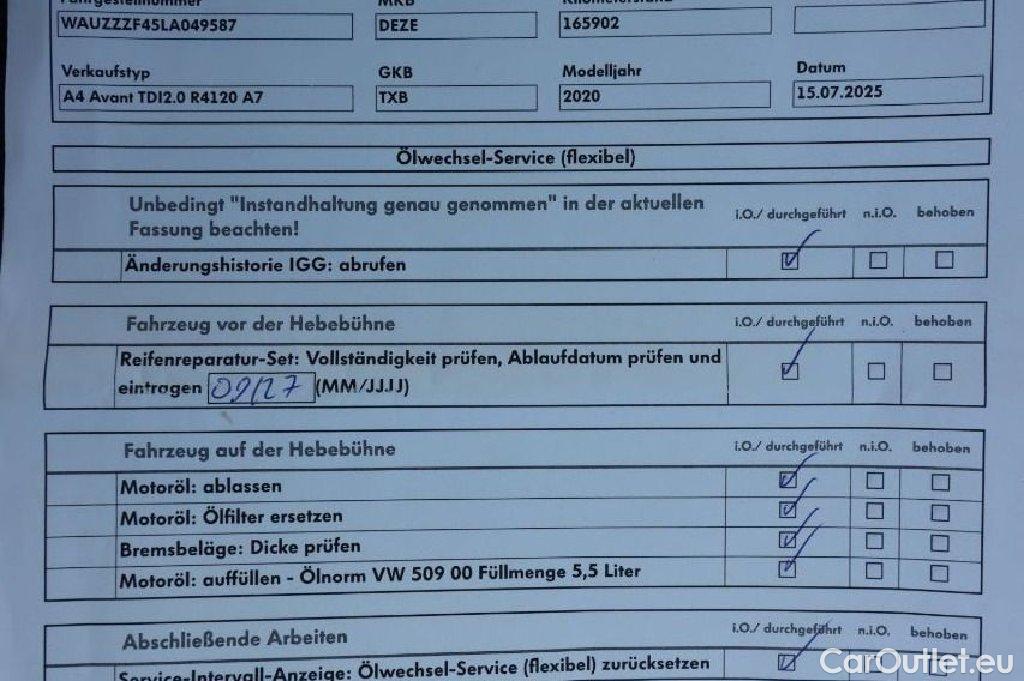 Fahrgestellnummer MKB Kilometerstand
WAUZZZF45LA049587 DEZE 165902
Verkaufstyp GKB Modelljahr Datum
A4 Avant TDI2.0 R4120 A7 TXB 2020 15.07.2025
Ölwechsel-Service (flexibel)
Unbedingt "Instandhaltung genau genommen" in der aktuellen
Fassung beachten!
i.O./ durchgeführt n.i.O. behoben
Änderungshistorie IGG: abrufen
Fahrzeug vor der Hebebühne i.O./ durchgeführt n.i.O. behoben
Reifenreparatur-Set: Vollständigkeit prüfen, Ablaufdatum prüfen und
eintragen 09/27 (MM/JJJJ)
Fahrzeug auf der Hebebühne i.O./ durchgeführt n.i.O. behoben
Motoröl: ablassen
Motoröl: Ölfilter ersetzen
Bremsbeläge: Dicke prüfen
Motoröl: auffüllen - Ölnorm VW 509 00 Füllmenge 5,5 Liter
Abschließende Arbeiten i.O./ durchgeführt n.i.O. behoben
Service-Intervall-Anzeige: Ölwechsel-Service (flexibel) zurücksetzen
CarOutlet.eu